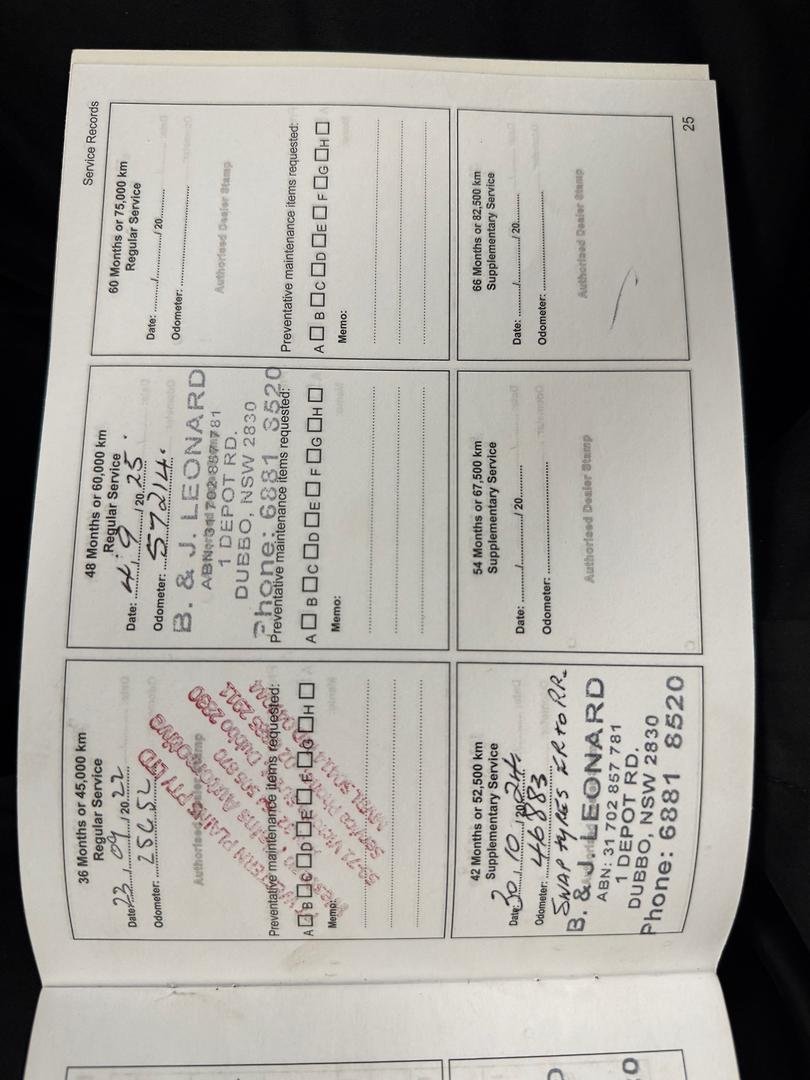 Service Records
36 Months or 45,000 km
Regular Service
Date: 23 / 09 / 20 22
Odometer: 25652
Authorised Dealer Stamp
WESTERN PLAINS PTY LTD
Preventative maintenance items requested:
A B C D E F G H
Memo:
48 Months or 60,000 km
Regular Service
Date: 4 / 9 / 20 25
Odometer: 57214
B. & J. LEONARD
ABN: 31 702 857 781
1 DEPOT RD.
DUBBO, NSW 2830
Phone: 6881 8520
Preventative maintenance items requested:
A B C D E F G H
Memo:
60 Months or 75,000 km
Regular Service
Date: / / 20
Odometer:
Authorised Dealer Stamp
Preventative maintenance items requested:
A B C D E F G H
Memo:
42 Months or 52,500 km
Supplementary Service
Date: 30 / 10 / 20 24
Odometer: 46883
SWAP TYRES FR to RR.
B. & J. LEONARD
ABN: 31 702 857 781
1 DEPOT RD.
DUBBO, NSW 2830
Phone: 6881 8520
54 Months or 67,500 km
Supplementary Service
Date: / / 20
Odometer:
Authorised Dealer Stamp
66 Months or 82,500 km
Supplementary Service
Date: / / 20
Odometer:
Authorised Dealer Stamp
25